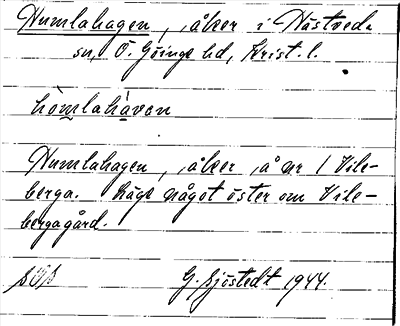 Humlahagen, åker i Nästveds
sn, Ö. Göinge hd, Krist. l.
hòmlahàvan
Humlahagen, åker å nr 1 Vile-
berga. Läge något öster om Vile-
bergagård.
G. Sjöstedt 1944.